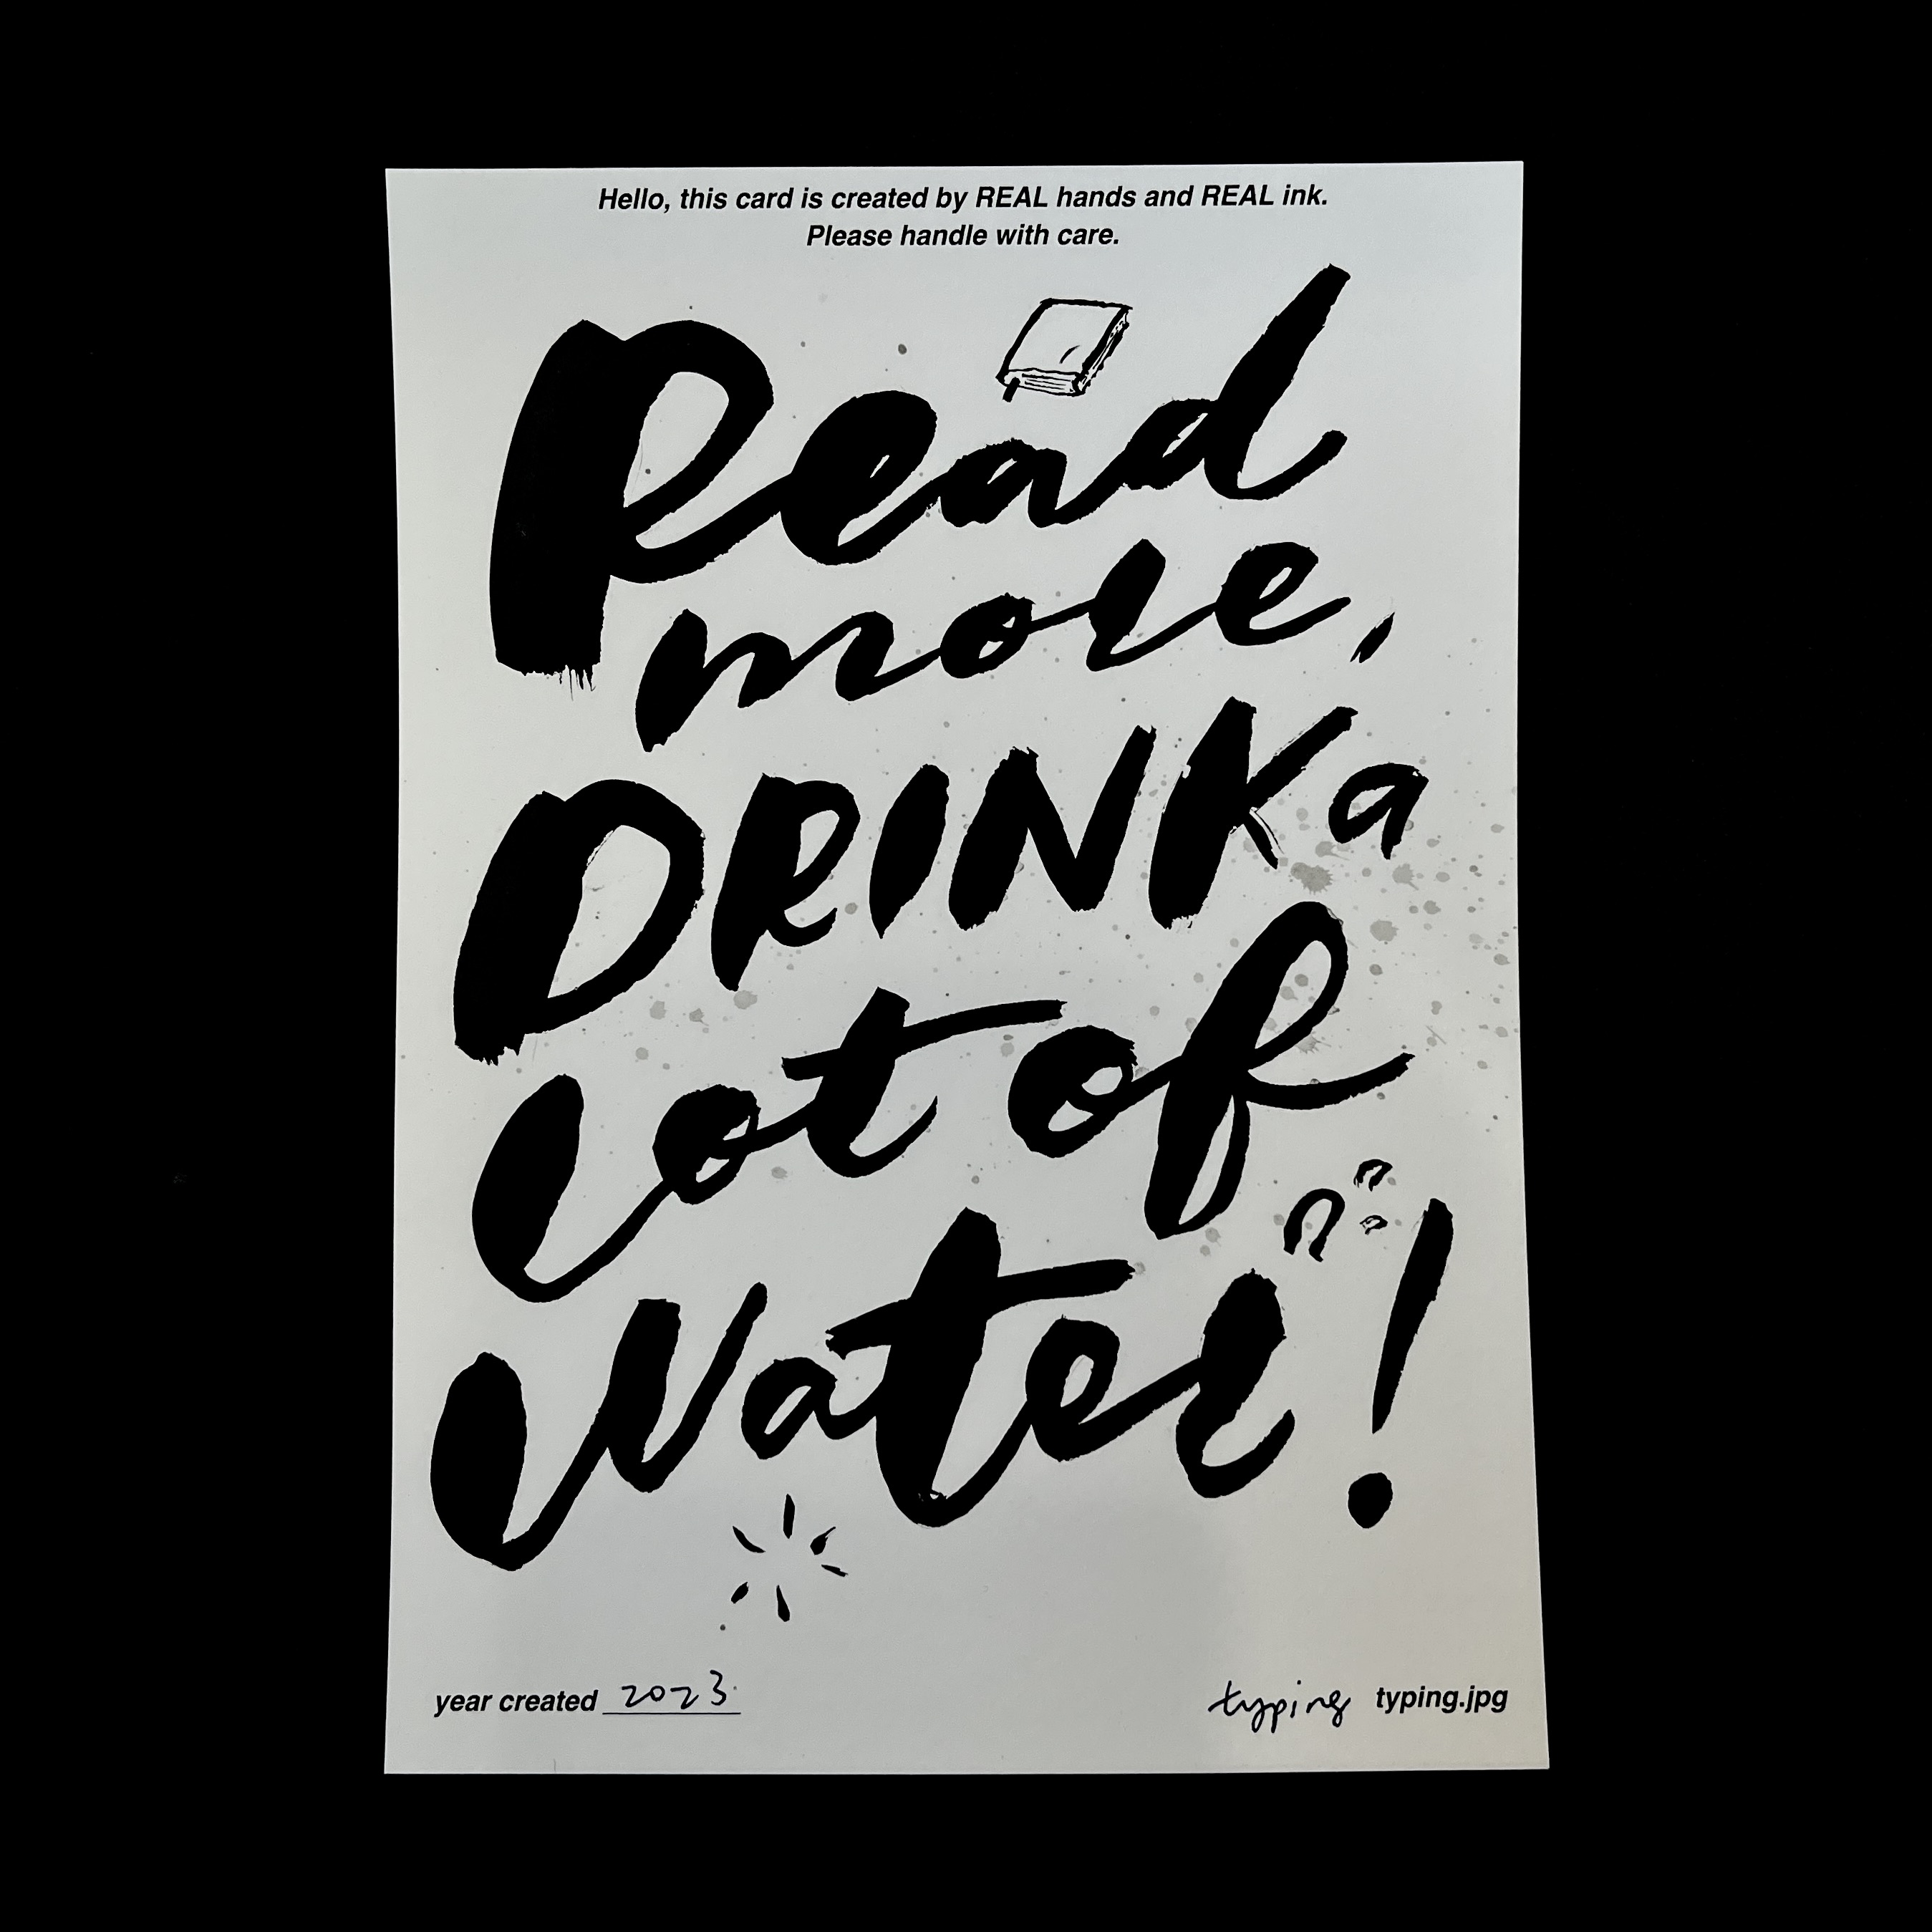 Hello, this card is created by REAL hands and REAL ink.
Please handle with care.
Read
more,
DRINK a
lot of
Water!
year created 2023
typing typing.jpg